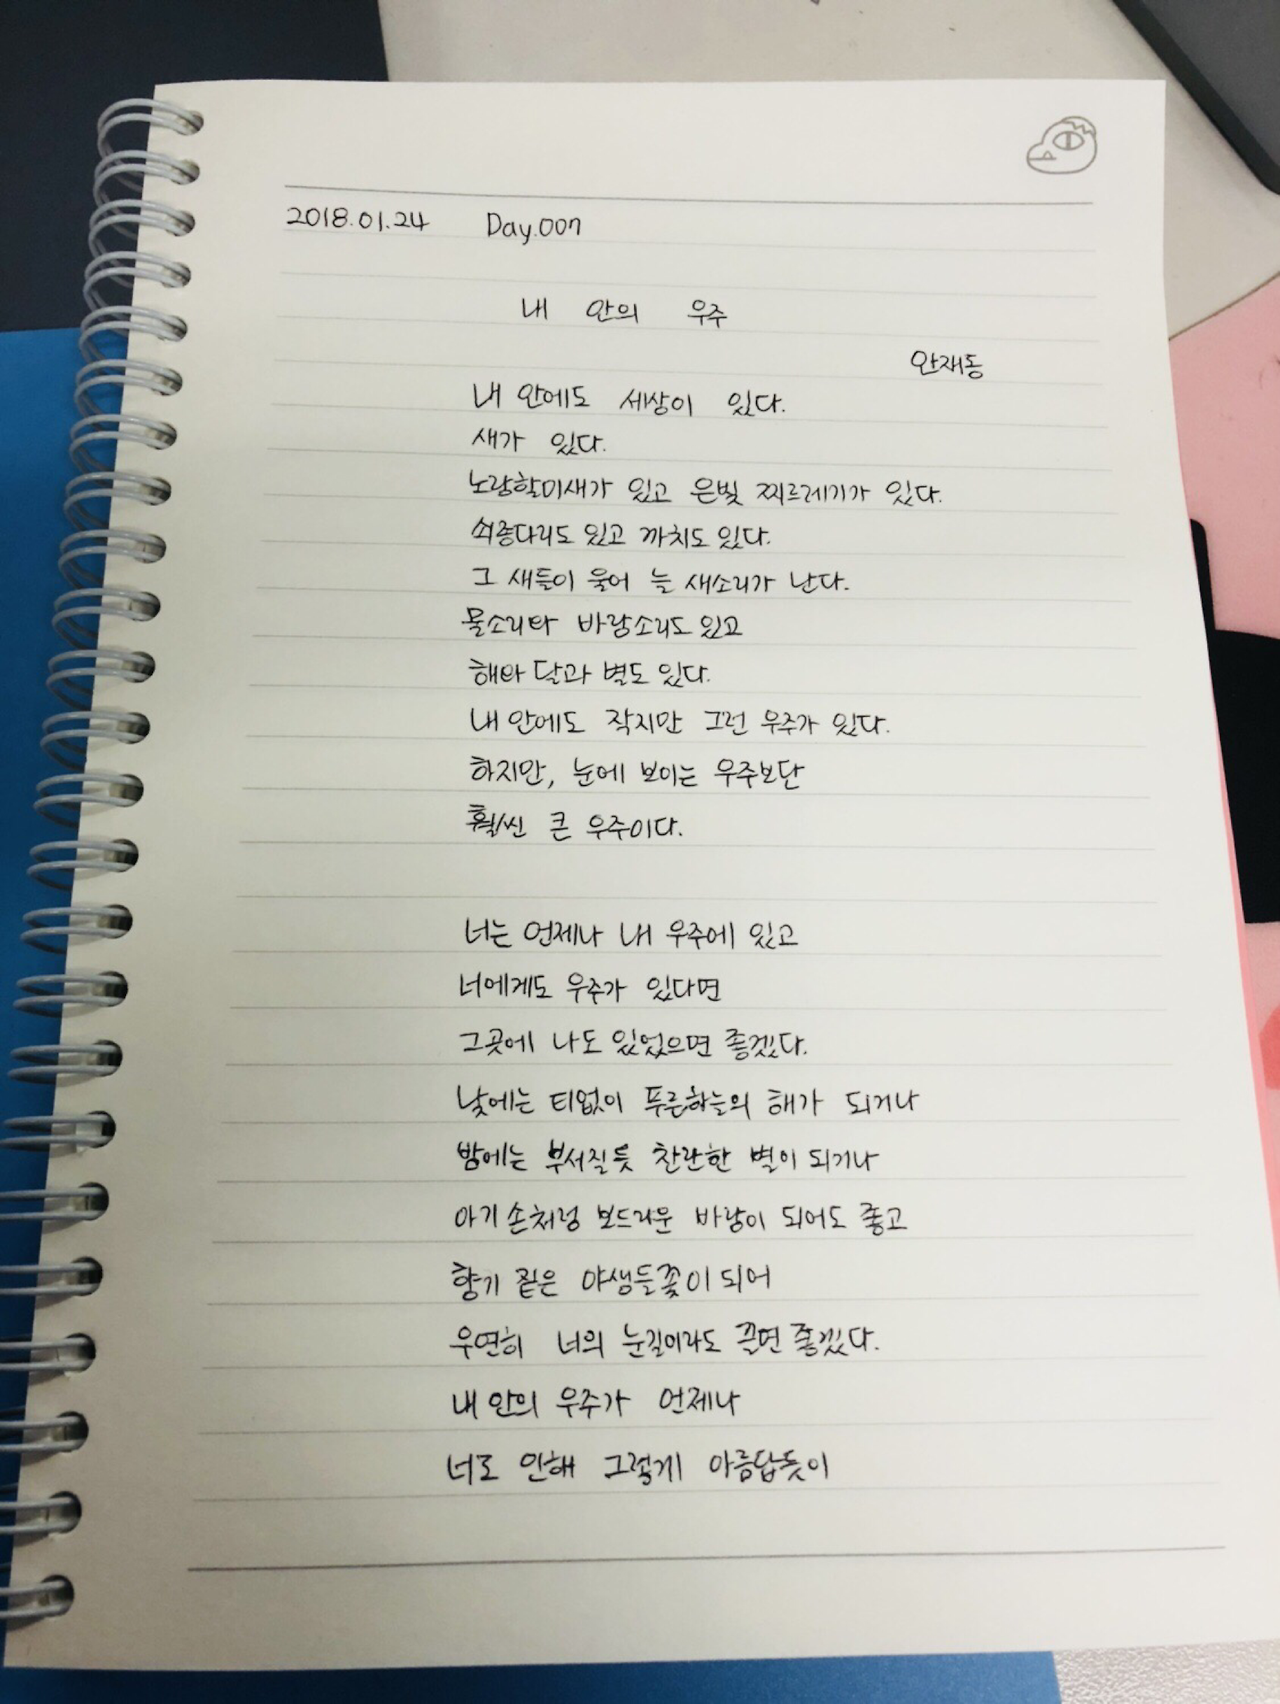 2018.01.24 Day.007
내 안의 우주
안재동
내 안에도 세상이 있다.
새가 있다.
노랑할미새가 있고 은빛 찌르레기가 있다.
쇠종다리도 있고 까치도 있다.
그 새들이 울어 늘 새소리가 난다.
물소리와 바람소리도 있고
해와 달과 별도 있다.
내 안에도 작지만 그런 우주가 있다.
하지만, 눈에 보이는 우주보단
훨씬 큰 우주이다.
너는 언제나 내 우주에 있고
너에게도 우주가 있다면
그곳에 나도 있었으면 좋겠다.
낮에는 티없이 푸른하늘의 해가 되거나
밤에는 부서질듯 찬란한 별이 되거나
아기 손처럼 보드라운 바람이 되어도 좋고
향기 짙은 야생들꽃이 되어
우연히 너의 눈길이라도 끌면 좋겠다.
내 안의 우주가 언제나
너로 인해 그렇게 아름답듯이